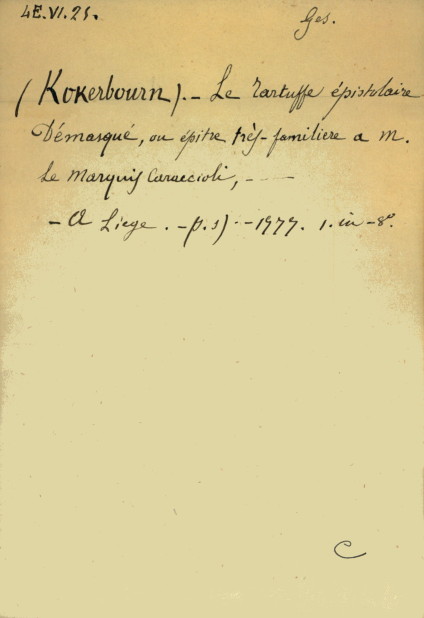 4E.VI.25.
Ges.
(Kokerbourn).- Le Tartuffe épistolaire
Démasqué, ou épitre très-familiere a m.
Le Marquis Caraccioli, - —
- A Liege. - p.s) - - 1777. 1. in-8º.
C